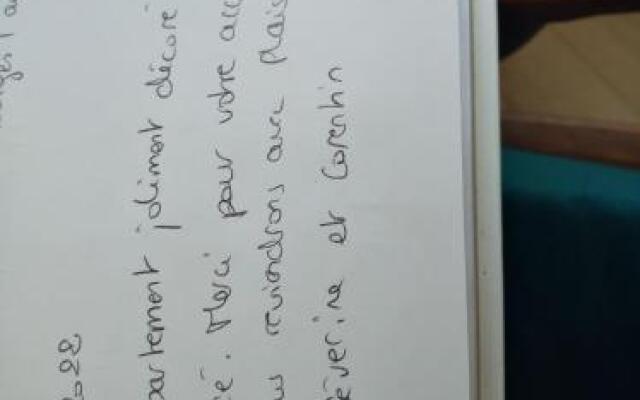 2022
partement joliment décoré
cé. Merci pour votre acc
us reviendrons avec plais
éverine et Corentin